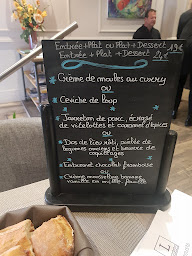 Entrée+Plat ou Plat+Dessert 19€
Entrée + Plat + Dessert 2 €
Crème de moules au curry
ou
Ceviche de loup
Jambon de porc, écrasé
de vitelottes et caramel d'épices
ou
Dos de lieu rôti, poêlée de
légumes anciens et beurre de
coquillages
Entremet chocolat framboise
ou
Crème mousseline banane
vanille en mille feuille
L